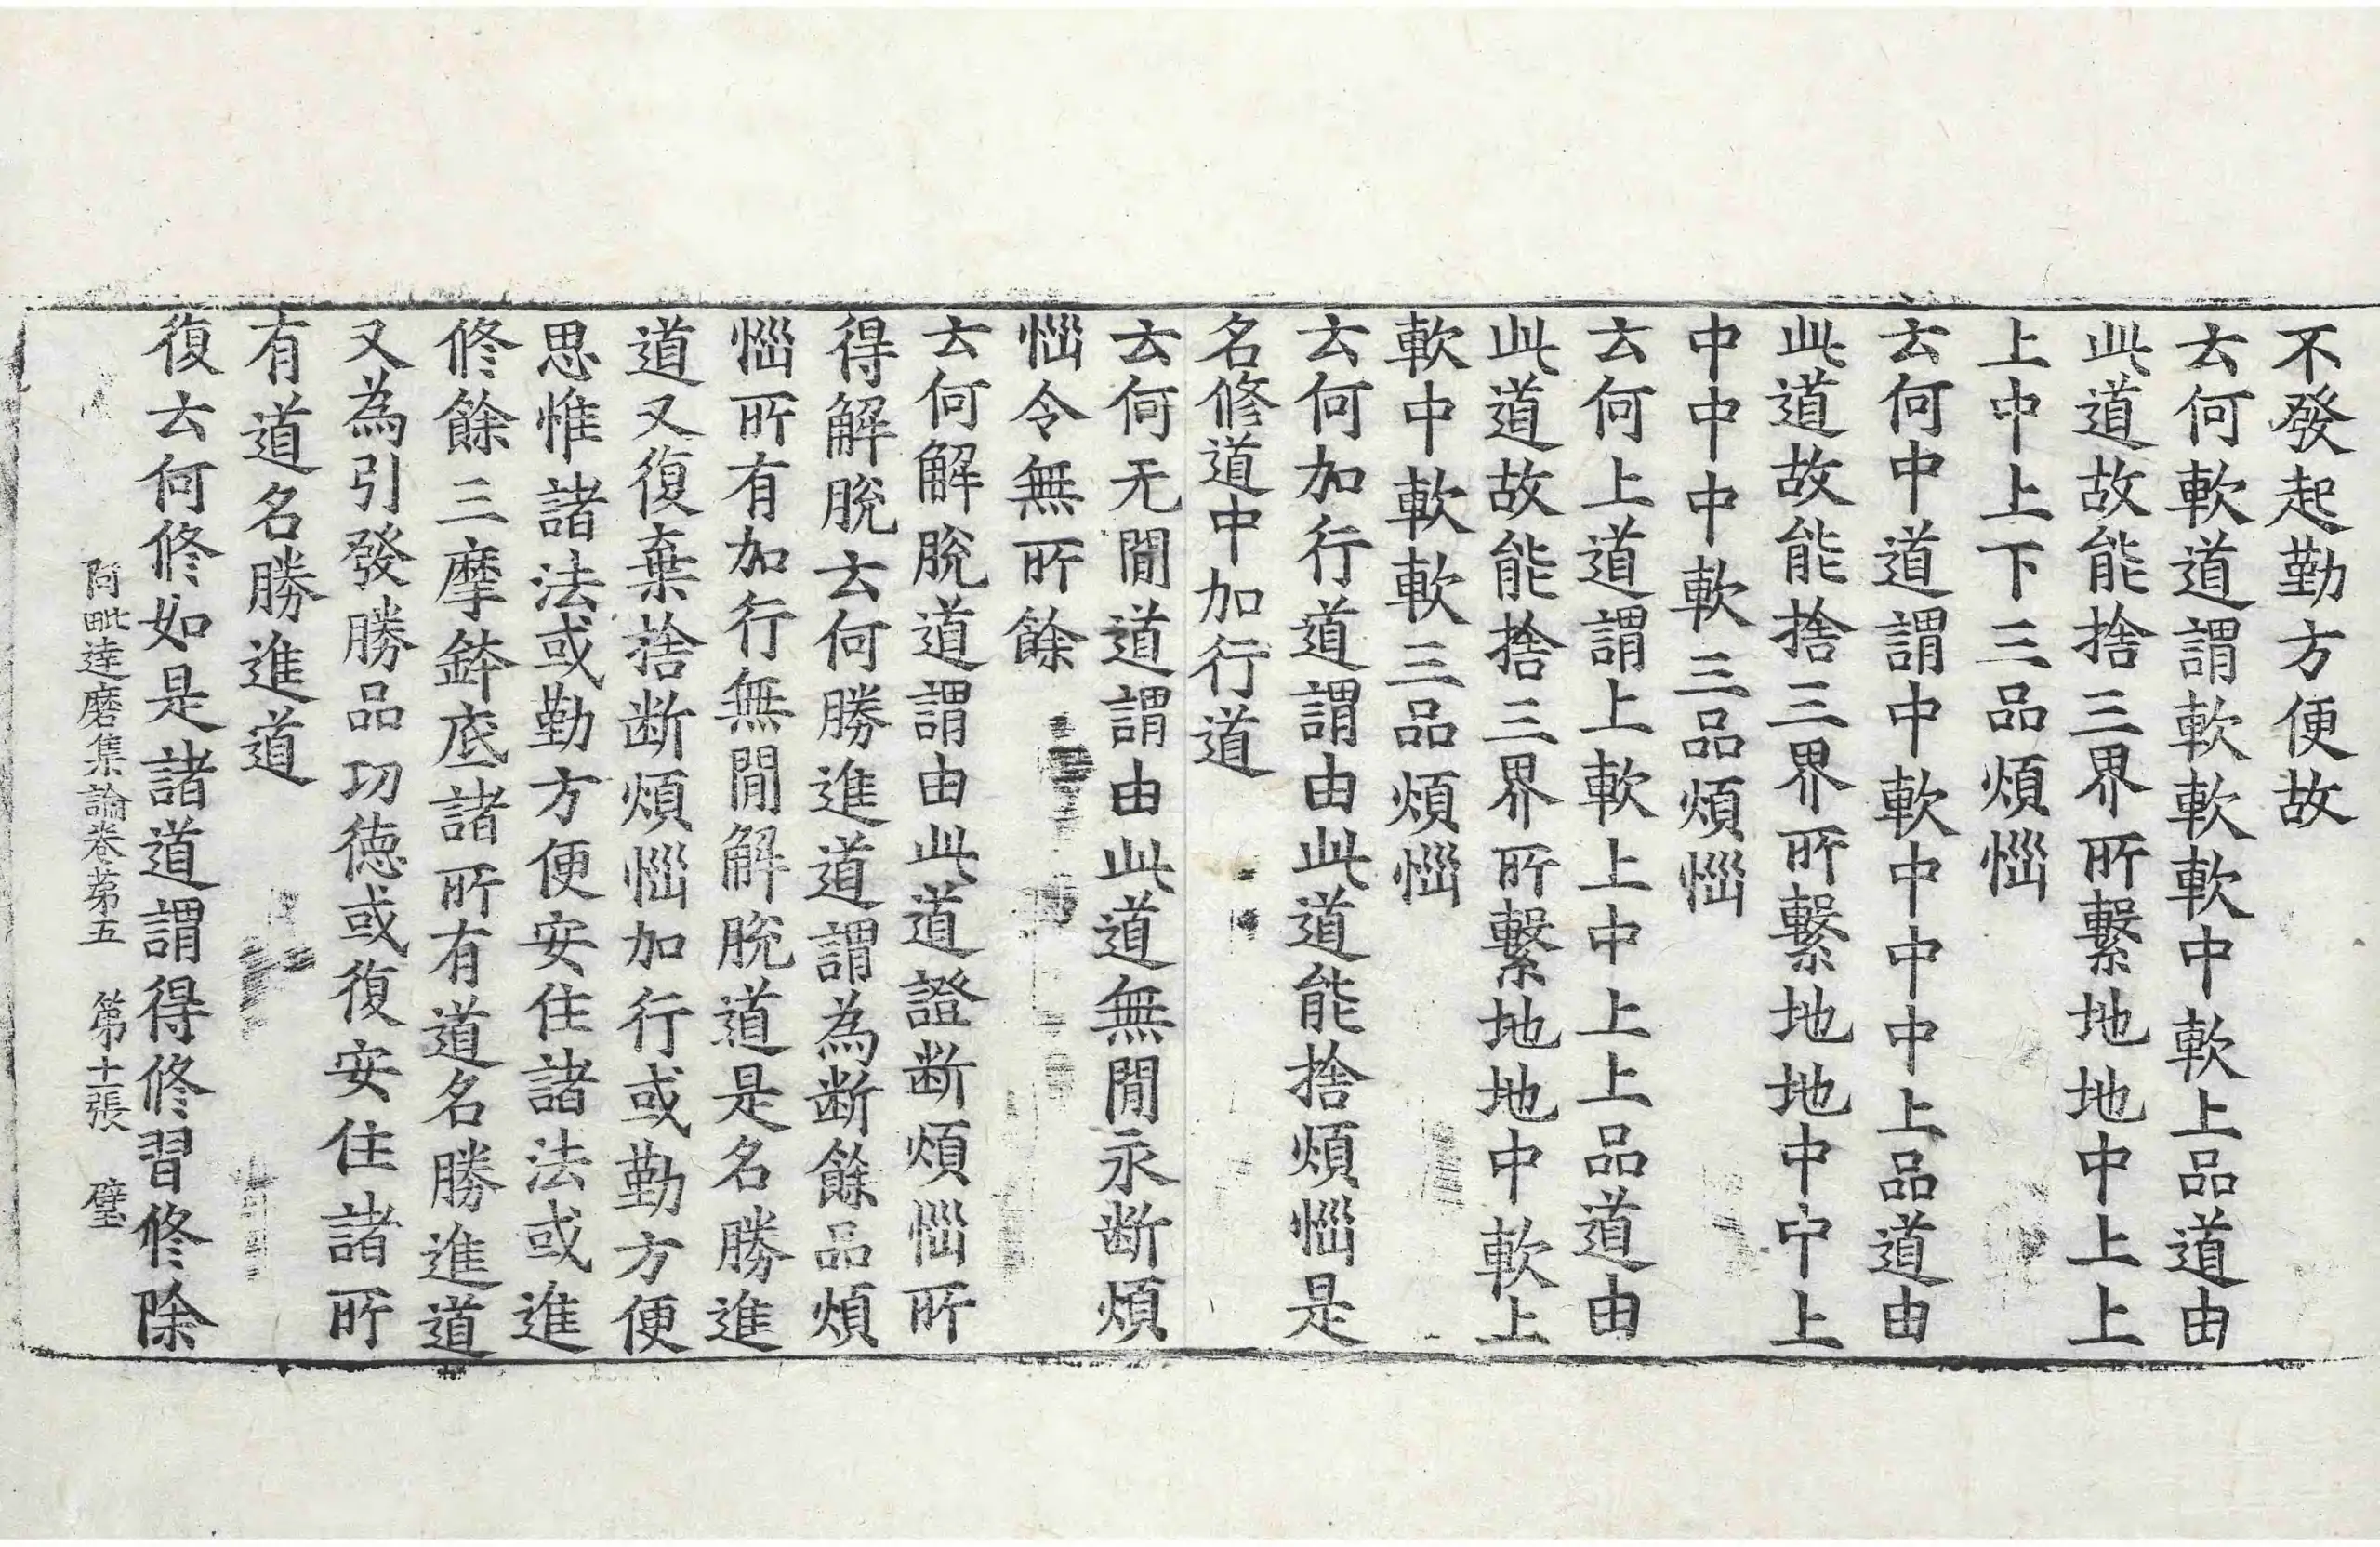 不發起勤方便故
云何軟道謂軟軟軟中軟上品道由
此道故能捨三界所繫地地中上上
上中上下三品煩惱
云何中道謂中軟中中中上品道由
此道故能捨三界所繫地地中中上
中中中軟三品煩惱
云何上道謂上軟上中上上品道由
此道故能捨三界所繫地地中軟上
軟中軟軟三品煩惱
云何加行道謂由此道能捨煩惱是
名修道中加行道
云何无閒道謂由此道無閒永断煩
惱令無所餘
云何解脫道謂由此道證断煩惱所
得解脫云何勝進道謂為断餘品煩
惱所有加行無閒解脫道是名勝進
道又復棄捨断煩惱加行或勤方便
思惟諸法或勤方便安住諸法或進
修餘三摩鉢底諸所有道名勝進道
又為引發勝品功德或復安住諸所
有道名勝進道
復云何修如是諸道謂得修習修除
阿毗達磨集論卷苐五 第十一張 璧